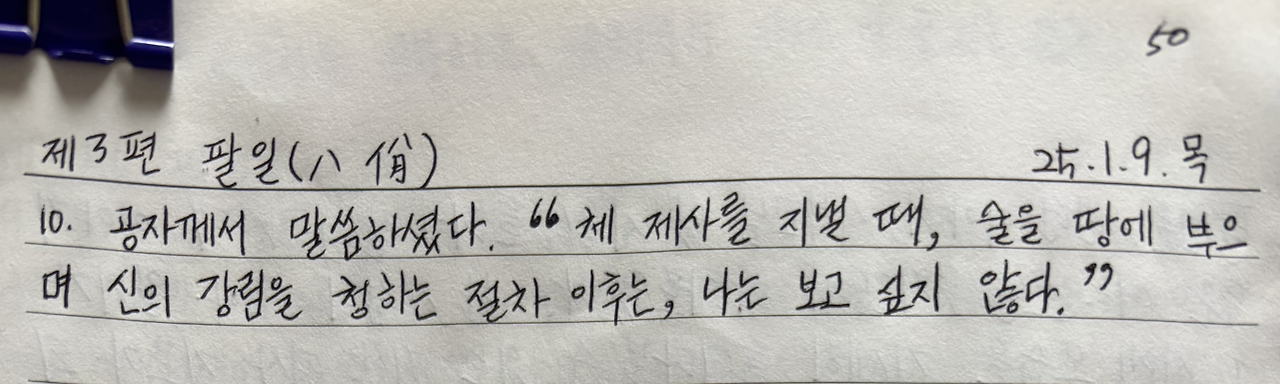 50
제3편 팔일(八佾) 25.1.9. 목
10. 공자께서 말씀하셨다. "체 제사를 지낼 때, 술을 땅에 부으
며 신의 강림을 청하는 절차 이후는, 나는 보고 싶지 않다."